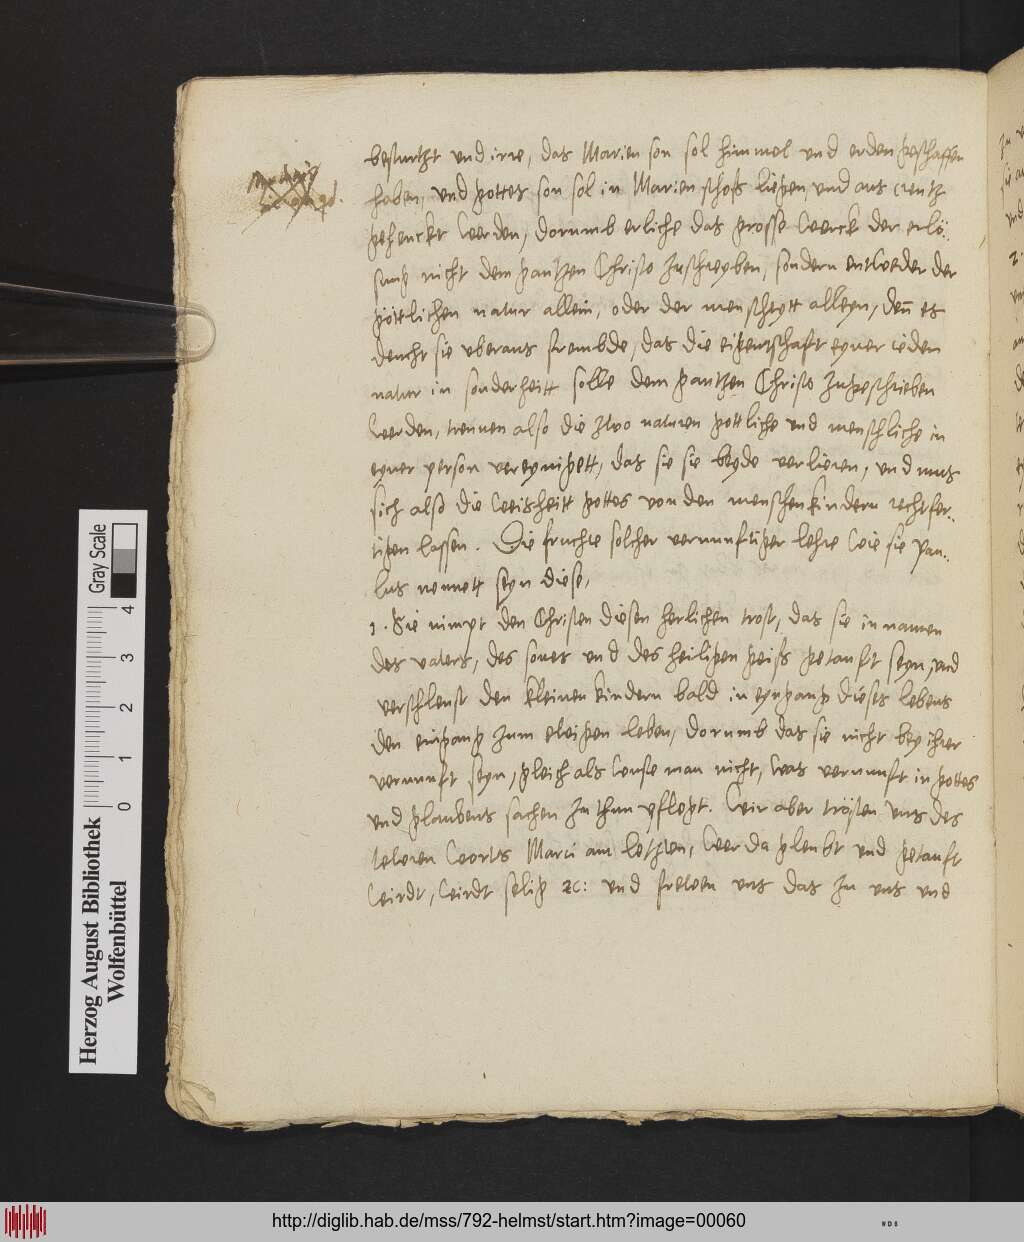 besturtzt und irre, das Marien son sol himmel und erden geschaffen
haben, und gottes son sol in Marien schoss liegen, und ans creutz
gehenckt werden, dorumb etliche das grosse werck der erlö-
sung nicht dem gantzen Christo zuschreyben, sondern entweder der
göttlichen natur allein, oder der menscheytt alleyn, denn es
deucht sie uberaus frembde, das die eigenschaft eyner ieden
natur in sonderheitt solle dem gantzen Christo zugeschrieben
werden, trennen also die zwo naturen gottliche und menschliche in
eyner person vereynigett, das sie sie beyde verlieren, und mus
sich also die weisheitt gottes von den menschenkindern rechtfer-
tigen lassen. Die fruchte solcher vernunftiger lehre wie sie Pau-
lus nennett seyn diese,
1. Sie nimpt den Christen diesen herlichen trost, das sie in namen
des vaters, des sones und des heiligen geists getauft seyn, und
verschleust den kleinen kindern bald in eyngang dieses lebens
den eingang zum ewigen leben, dorumb das sie nicht bey ihrer
vernunft seyn, gleich als wuste man nicht, was vernunft in gottes
und glaubens sachen zu thun pflegt. Wir aber trösten uns des
tewren worts Marci am letzten, wer da gleubt und getauft
wirdt, wirdt selig ec: und frewen uns das zu uns und
Herzog August Bibliothek
Wolfenbüttel
Gray Scale
0 1 2 3 4
http://diglib.hab.de/mss/792-helmst/start.htm?image=00060